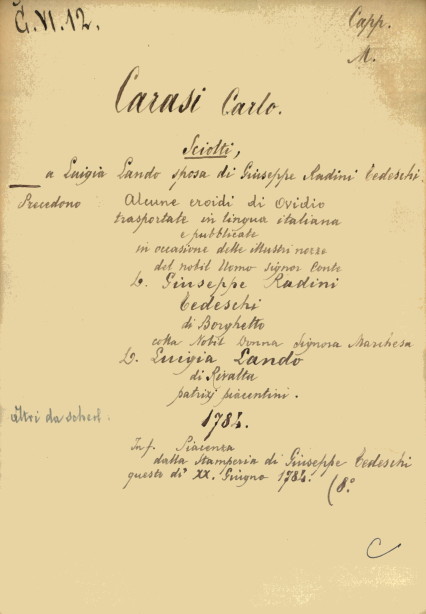 Č.VI.12.
Capp.
M.
Carasi Carlo.
Sciolti,
a Luigia Lando sposa di Giuseppe Radini Tedeschi.
Precedono Alcune eroidi di Ovidio
trasportate in lingua italiana
e pubblicate
in occasione delle illustri nozze
del nobil Uomo Signor Conte
D. Giuseppe Radini
Tedeschi
di Borghetto
colla Nobil Donna Signora Marchesa
D. Luigia Lando
di Rivalta
patrizj piacentini.
altri da sched.
1784.
In f. Piacenza
dalla Stamperia di Giuseppe Tedeschi
questo dì XX. Giugno 1784. (8.º
C